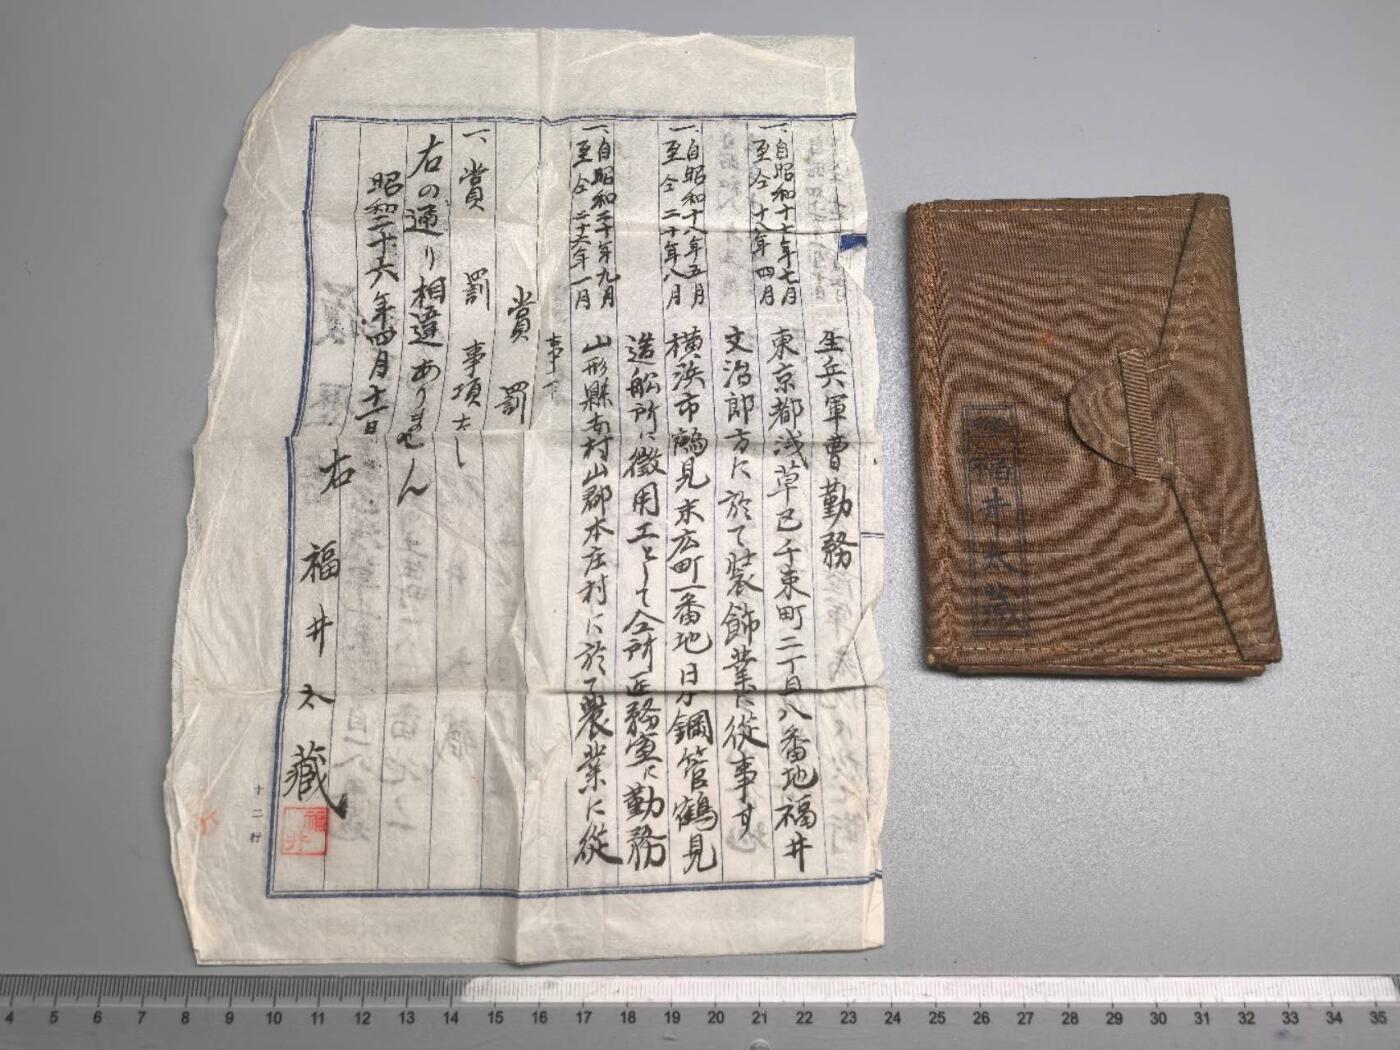 生兵軍曹勤務
一、自昭和十七年七月
至仝十八年四月
東京都浅草区千束町二丁目八番地福井
文治郎方に於て装飾業に従事す
一、自昭和十八年五月
至仝二十年八月
横浜市鶴見末広町一番地日本鋼管鶴見
造船所に徴用工として仝所医務室に勤務
一、自昭和二十年九月
至仝二十六年一月
山形縣南村山郡本庄村に於て農業に従
事す
賞罰
一、賞罰事項なし
右の通り相違ありません
昭和二十六年四月十一日
右 福井太藏
福井
十二行
福井太藏
4 5 6 7 8 9 10 11 12 13 14 15 16 17 18 19 20 21 22 23 24 25 26 27 28 29 30 31 32 33 34 35